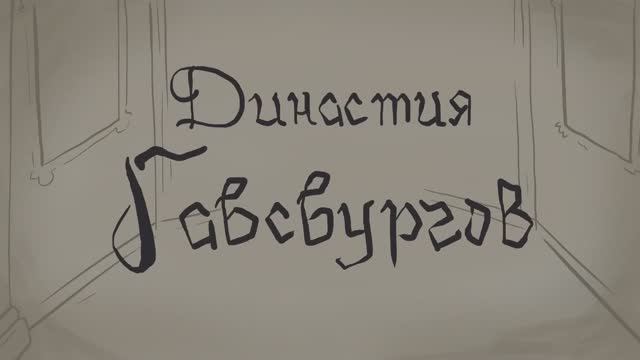 Династия
Габсбургов